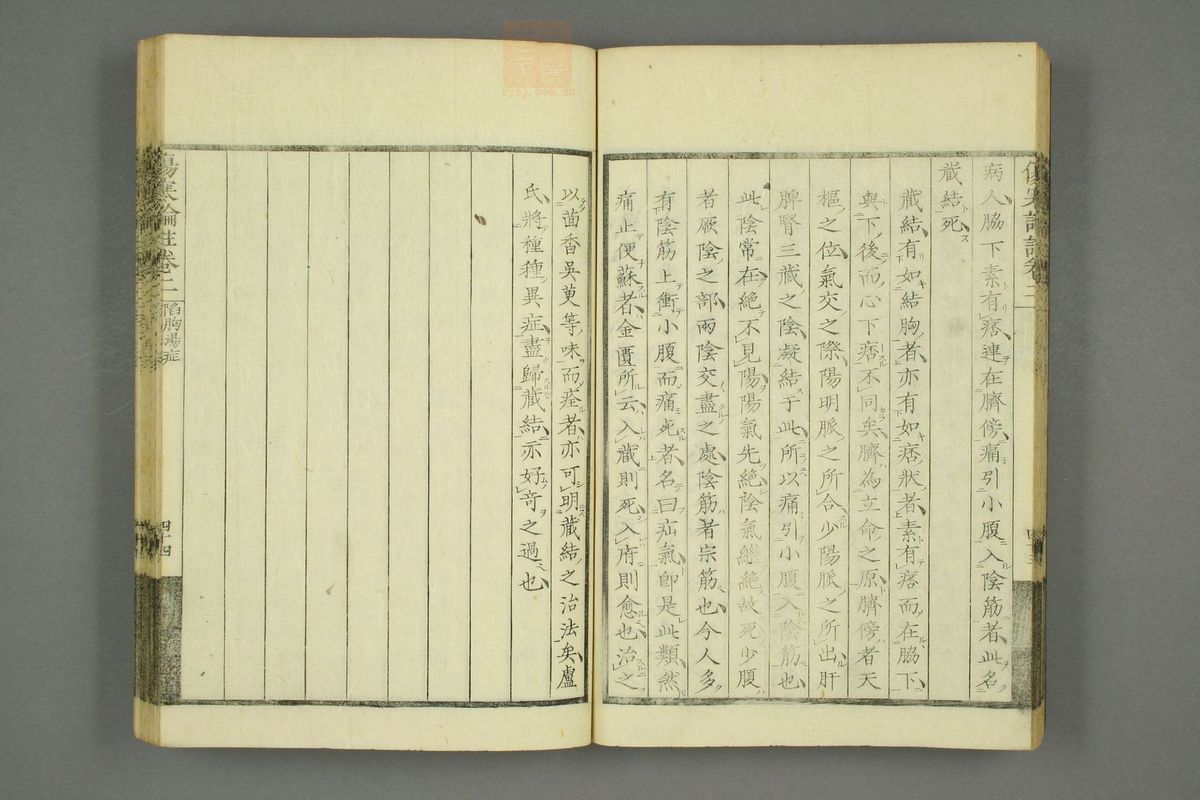 病人脇下素有痞連在臍傍痛引小腹入陰筋者此名
藏結死
藏結有如結胸者亦有如痞狀者素有痞而在脇下
與下後而心下痞不同矣臍為立命之原臍傍者天
樞之位氣交之際陽明脈之所合少陽脈之所出肝
脾腎三藏之陰凝結于此所以痛引小腹入陰筋也
此陰常在絶不見陽陽氣先絶陰氣繼絶故死少腹
者厥陰之部兩陰交盡之處陰筋者宗筋也今人多
有陰筋上衝小腹而痛死者名曰疝氣卽是此類然
痛止便蘇者金匱所云入藏則死入府則愈也治之
以茴香吳萸等味而痊者亦可明藏結之治法矣盧
氏將種種異症盡歸藏結亦好奇之過也
傷寒論註卷二
陷胸湯症
四十四
zysj.com.cn